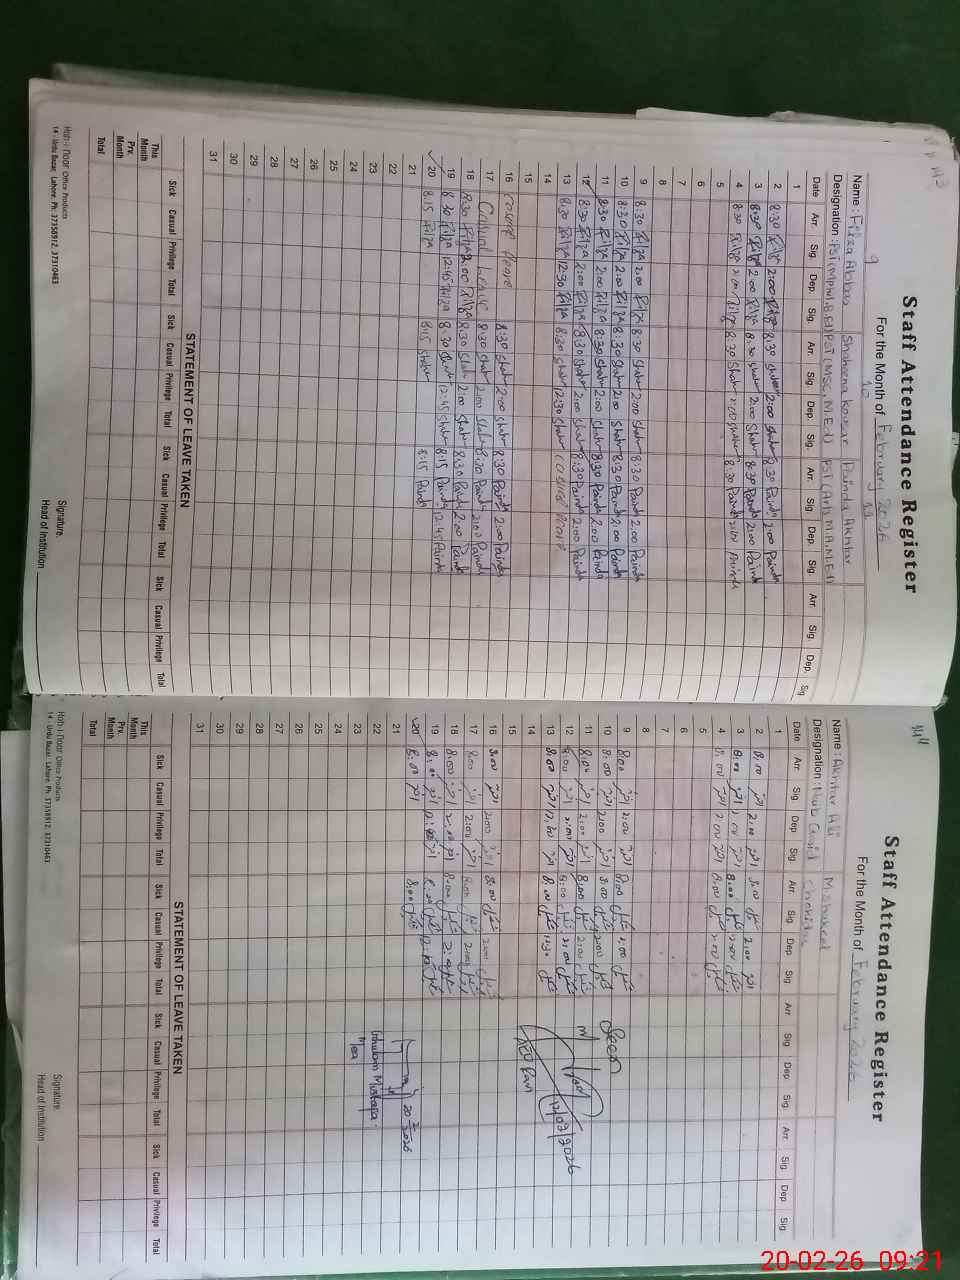 143
Staff Attendance Register
For the Month of February 2026
9 10 11
Name: Filza Abbas Shaheena Kausar Painda Akhtar
Designation: PST (MPhil, B.Ed) PST (MSc, M.Ed) PST (Arts M.A, M.Ed)
Date Arr. Sig. Dep. Sig. Arr. Sig. Dep. Sig. Arr. Sig. Dep. Sig. Arr. Sig. Dep. Sig.
1
2 8:30 Filza 2:00 Filza 8:30 Shah 2:00 Shah 8:30 Painda 2:00 Painda
3 8:30 Filza 2:00 Filza 8:30 Shah 2:00 Shah 8:30 Painda 2:00 Painda
4 8:30 Filza 2:00 Filza 8:30 Shah 2:00 Shah 8:30 Painda 2:00 Painda
5
6
7
8
9 8:30 Filza 2:00 Filza 8:30 Shah 2:00 Shah 8:30 Painda 2:00 Painda
10 8:30 Filza 2:00 Filza 8:30 Shah 2:00 Shah 8:30 Painda 2:00 Painda
11 8:30 Filza 2:00 Filza 8:30 Shah 2:00 Shah 8:30 Painda 2:00 Painda
12 8:30 Filza 2:00 Filza 8:30 Shah 2:00 Shah 8:30 Painda 2:00 Painda
13 8:30 Filza 12:30 Filza 8:30 Shah 12:30 Shah Casual leave
14
15
16 Casual leave 8:30 Shah 2:00 Shah 8:30 Painda 2:00 Painda
17 Casual leave 8:30 Shah 2:00 Shah 8:30 Painda 2:00 Painda
18 8:30 Filza 2:00 Filza 8:30 Shah 2:00 Shah 8:30 Painda 2:00 Painda
19 8:30 Filza 12:45 Filza 8:30 Shah 12:45 Shah 8:15 Painda 12:45 Painda
20 8:15 Filza 8:15 Shah 8:15 Painda
21
22
23
24
25
26
27
28
29
30
31
STATEMENT OF LEAVE TAKEN
Sick Casual Privilege Total Sick Casual Privilege Total Sick Casual Privilege Total Sick Casual Privilege Total
This Month
Prv. Month
Total
Signature.
Head of Institution
Hoh-i-Noor Office Products
14 - Urdu Bazar, Lahore. Ph: 37358912, 37310463
144
Staff Attendance Register
For the Month of February 2026
Name: Akhtar Ali
Designation: Naib Qasid Chokidar
Date Arr. Sig. Dep. Sig. Arr. Sig. Dep. Sig. Arr. Sig. Dep. Sig. Arr. Sig. Dep. Sig.
1
2 8:00 اختر 2:00 اختر 8:00 2:00
3 8:00 اختر 2:00 اختر 8:00 2:00
4 8:00 اختر 2:00 اختر 8:00 2:00
5
6
7
8
9 8:00 اختر 2:00 اختر 8:00 2:00
10 8:00 اختر 2:00 اختر 8:00 2:00
11 8:00 اختر 2:00 اختر 8:00 2:00
12 8:00 اختر 2:00 اختر 8:00 2:00
13 8:00 اختر اختر 8:00 12:30
14
15
16 8:00 اختر 2:00 اختر 8:00 2:00
17 8:00 اختر 2:00 اختر 8:00 2:00
18 8:00 اختر 2:00 اختر 8:00 2:00
19 8:00 اختر اختر 8:00
20 8:00 اختر 8:00
21
22
23
24
25
26
27
28
29
30
31
Seen
12/02/2026
20 2/2026
Ghulam Mustafa
STATEMENT OF LEAVE TAKEN
Sick Casual Privilege Total Sick Casual Privilege Total Sick Casual Privilege Total Sick Casual Privilege Total
This Month
Prv. Month
Total
Signature.
Head of Institution
Hoh-i-Noor Office Products
14 - Urdu Bazar, Lahore. Ph: 37358912, 37310463
20-02-26 09:21